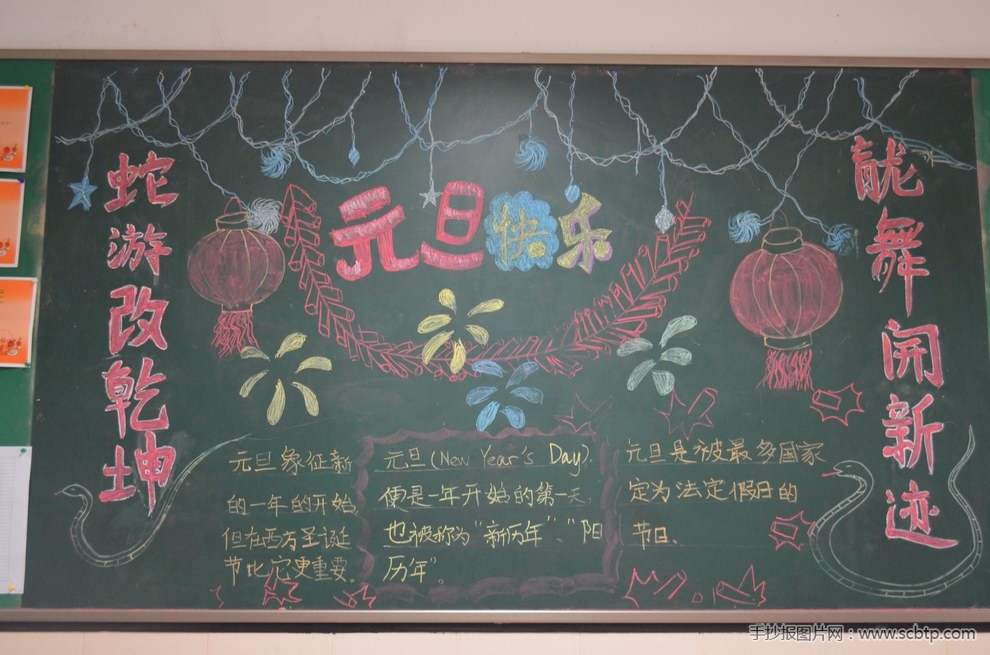 元旦快乐
龍舞開新迹
蛇游改乾坤
元旦象征新
的一年的开始,
但在西方圣诞
节比它更重要。
元旦(New Year's Day),
便是一年开始的第一天,
也被称为“新历年”、“阳
历年”。
元旦是被最多国家
定为法定假日的
节日。
手抄报图片网：www.scbtp.com